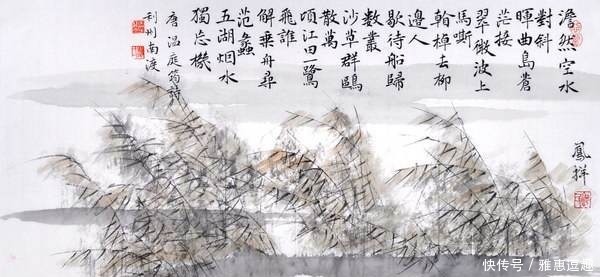 澹然空水
對斜
暉曲島蒼
茫接
翠微波上
馬嘶
看棹去柳
邊人
歇待船歸
數叢
沙草群鷗
散萬
頃江田一鷺
飛誰
解乘舟尋
范蠡
五湖烟水
獨忘機
唐溫庭筠詩
利州南渡
鳳祥
快传号 / 雅惠逗趣